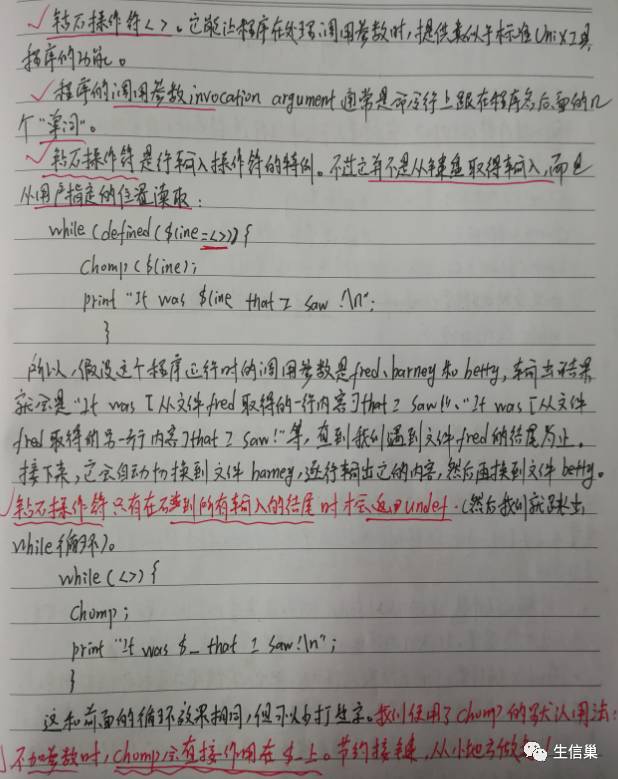 ✓钻石操作符<>。它能让程序在处理调用参数时,提供类似于标准Unix工具
程序的功能。
✓程序的调用参数invocation argument通常是命令行上跟在程序名后面的几
个"单词"。
✓钻石操作符是行输入操作符的特例。不过它并不是从键盘取得输入,而是
从用户指定的位置读取:
while (defined ($line=<>)) {
chomp ($line);
print "It was $line that I saw !\n";
}
所以,假设这个程序运行时的调用参数是fred、barney和betty,输出结果
就会是"It was [从文件fred取得的一行内容] that I saw!"、"It was [从文件
fred取得的另一行内容] that I saw!"等,直到我们遇到文件fred的结尾为止。
接下来,它会自动切换到文件barney,逐行输出它的内容,然后再换到文件betty。
✓钻石操作符只有在碰到所有输入的结尾时才会返回undef.(然后我们就跳出
while循环)。
while (<>) {
chomp;
print "It was $_ that I saw!\n";
}
这和前面的循环效果相同,但可以少打些字。我们使用了chomp的默认用法:
不加参数时,chomp会直接作用在$_上。节约按键,从小地方做
生信巢